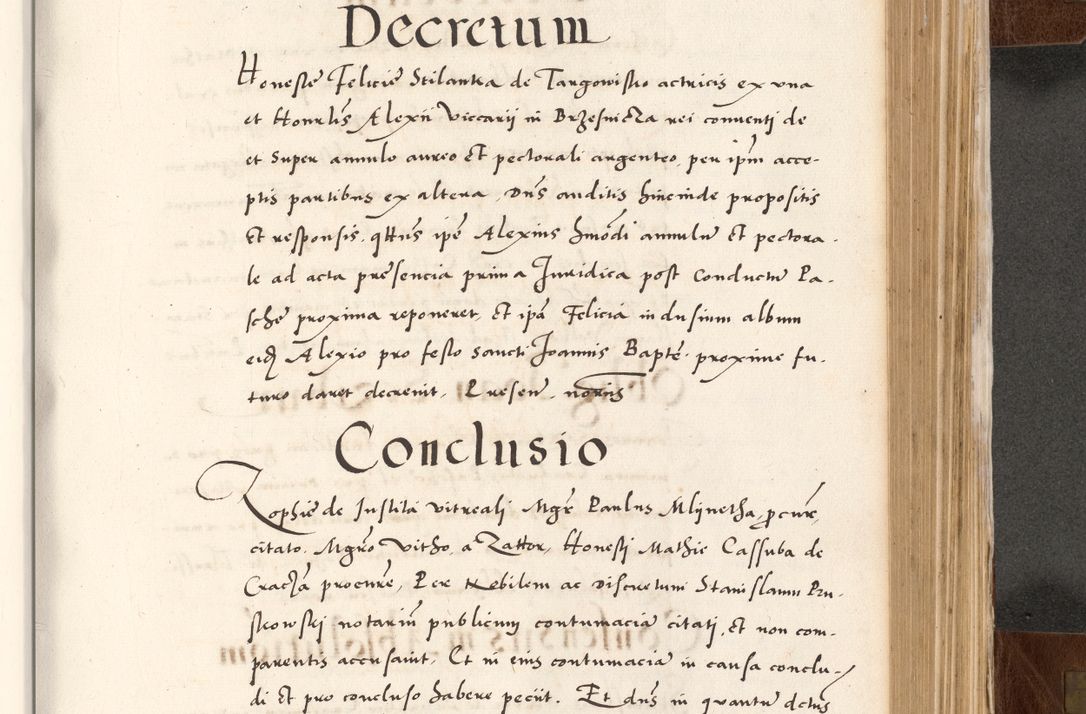 Decretum
Honeste Felicie Stilanka de Targowisko actricis ex vna
et Honrlis Alexii Viccarii in Brzesnicza rei conventi de
et super annulo aureo et pectorali argenteo, per ipm acce-
ptis partibus ex altera, Dns auditis hincinde propositis
et responsis, qttns ipe Alexius hmodi annulu et pectora-
le ad acta presencia prima Juridica post Conductu Pa-
sche proxima reponeret, et ipa Felicia indusium album
eid Alexio pro festo sancti Joannis Bapte proxime fu-
turo daret decrevit, Presen. notriis
Conclusio
Zophie de Insula vitreali Mgr Paulus Mlijnetha, procur,
citato, Mgro Vitho, a Zattor, Honesti Mathie Cassuba de
Cracha procure, Per Nobilem ac Discretum Stanislaum Pru-
skowskj notarium publicum contumacia citatj, et non com-
parentis accusavit, Et in eius contumacia in causa conclu-
di et pro concluso habere peciit. Et dns in quantu dctus